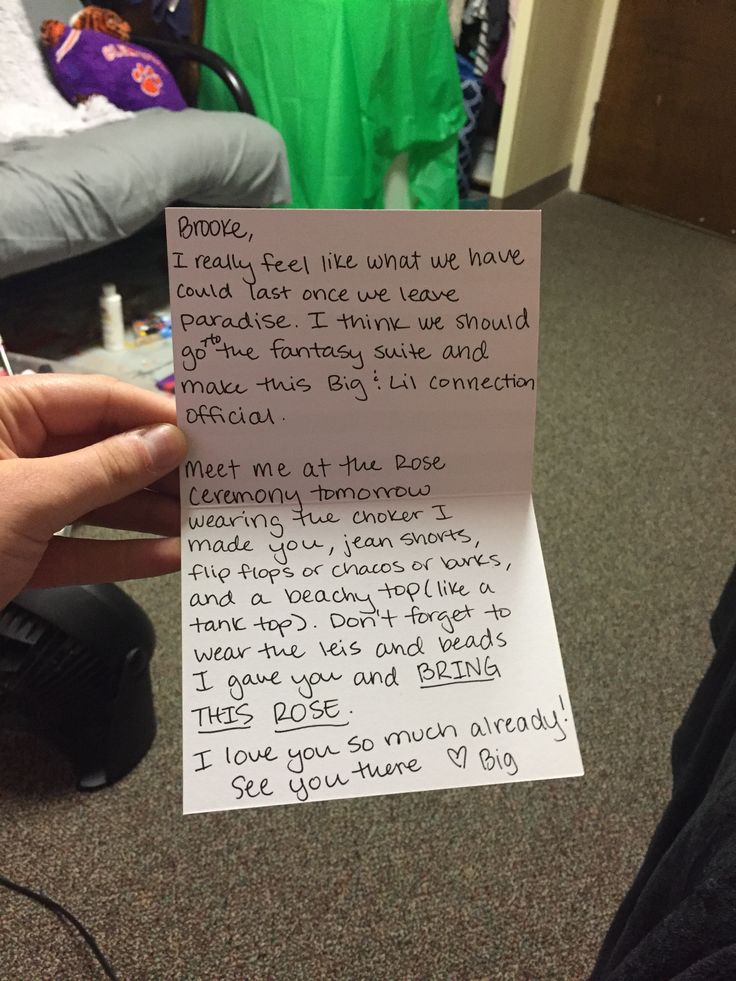 CLEMSON
Brooke,
I really feel like what we have
could last once we leave
paradise. I think we should
go to the fantasy suite and
make this Big & Lil connection
official.
Meet me at the Rose
ceremony tomorrow
wearing the choker I
made you, jean shorts,
flip flops or chacos or burks,
and a beachy top (like a
tank top). Don't forget to
wear the leis and beads
I gave you and BRING
THIS ROSE.
I love you so much already!
See you there ♡ Big